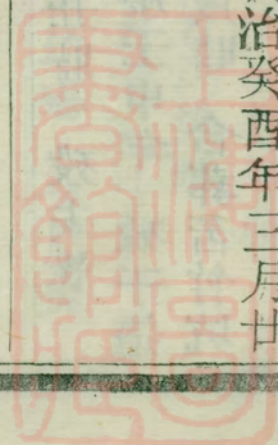 治癸酉年三月廿
上海圖
書館藏